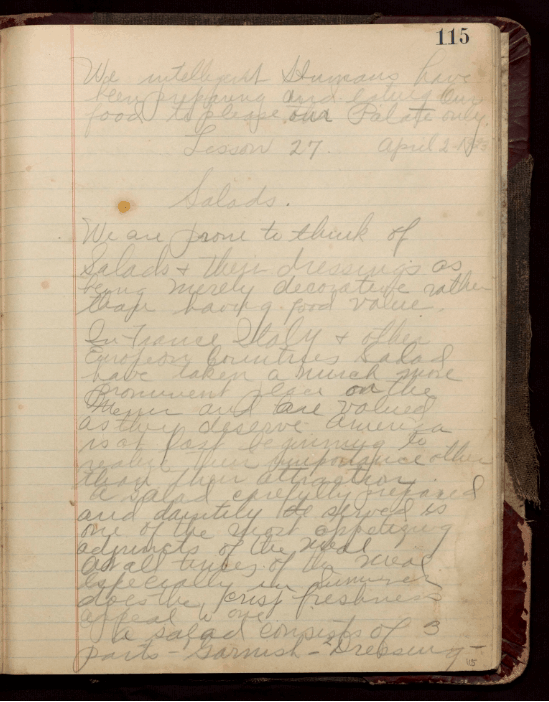 115
We intelligent Humans have
been preparing and eating our
food to please our Palate only.
Lesson 27. April 2
Salads.
We are prone to think of
Salads + their dressings as
being merely decorative rather
than having food value.
In France Italy + other
European Countries Salad
have taken a much more
prominent place on the
Menu and are valued
as they deserve America
is at last beginning to
realize their importance other
than their attraction.
A salad carefully prepared
and daintily served is
one of the most appetizing
adjuncts of the meal
At all times of the meal
Especially in Summer
does the crisp freshness
appeal to one
A salad consists of 3
parts - Garnish - Dressing -
115